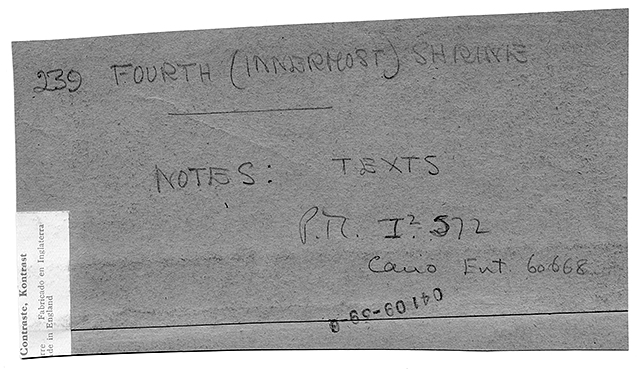 239 FOURTH (INNERMOST) SHRINE
NOTES: TEXTS
P.M. I² 572
Cairo Ent. 60668
04109-39-8
Contraste, Kontrast
Fabricado en Inglaterra
de in England